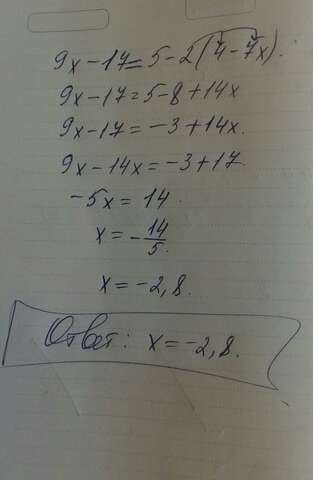 9x-17=5-2(4-7x).
9x-17=5-8+14x
9x-17=-3+14x.
9x-14x=-3+17.
-5x=14.
x=-14/5.
x=-2,8.
Ответ: x=-2,8.